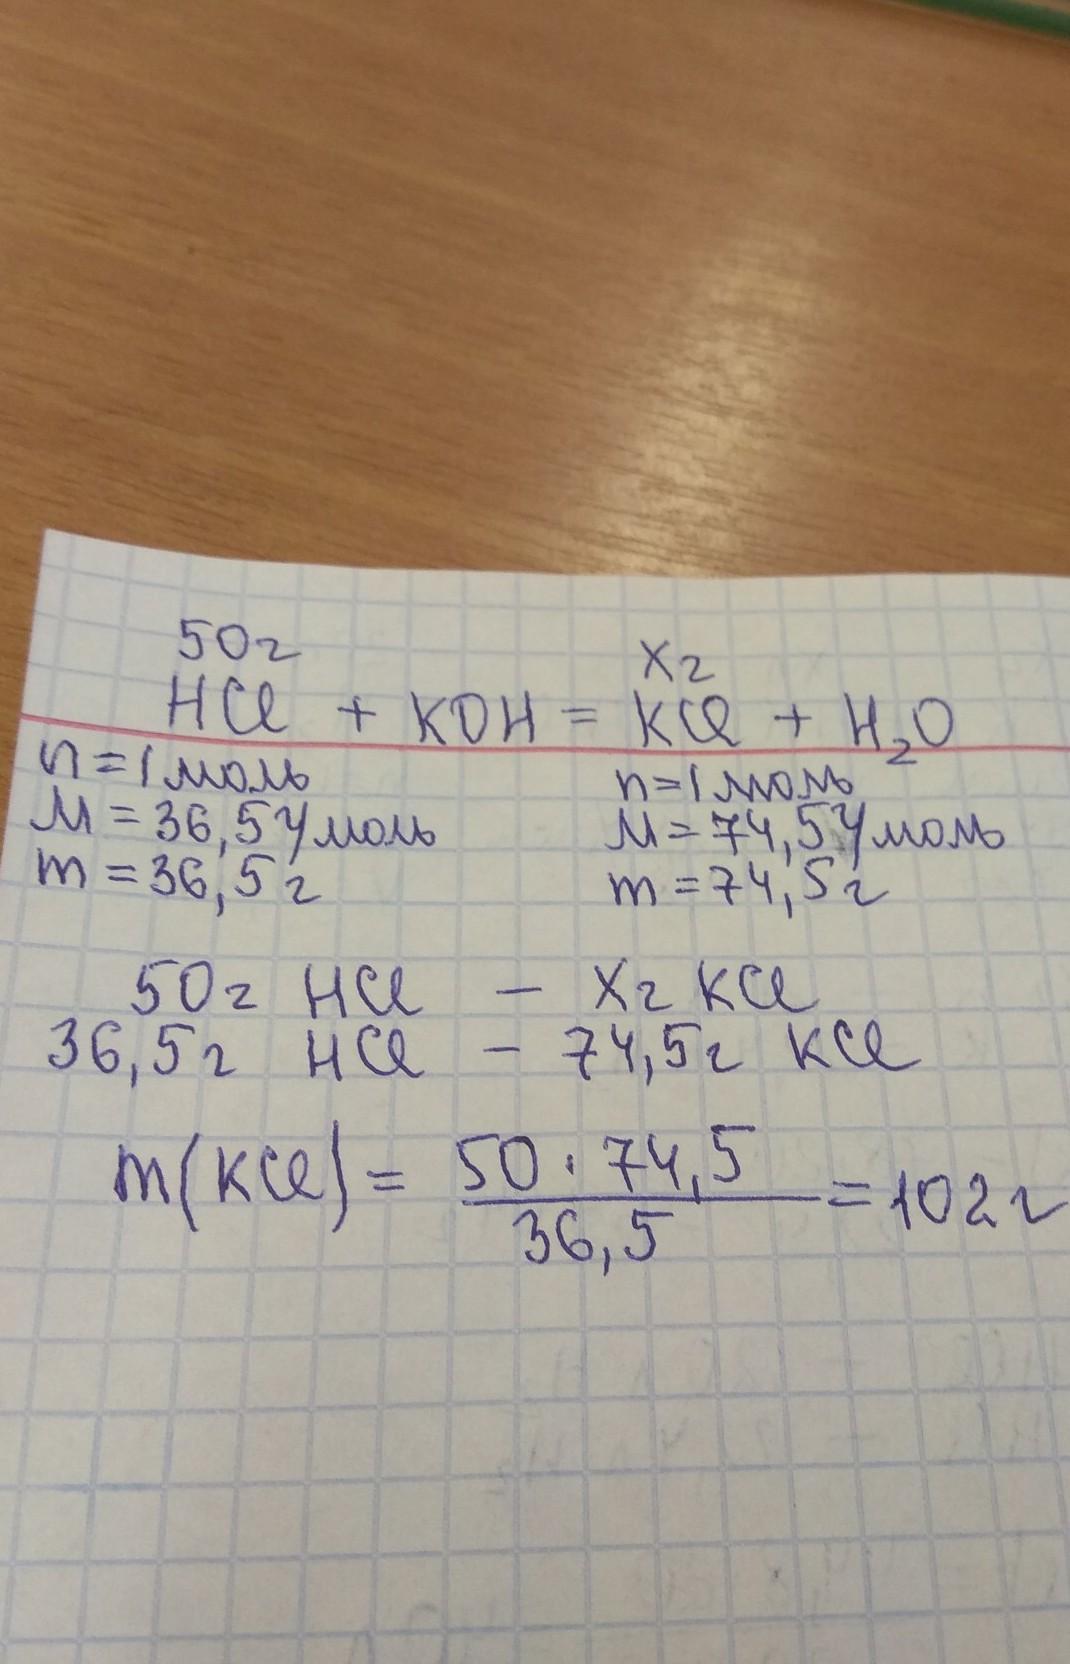 50г хг
HCl + KOH = KCl + H₂O
n=1моль n=1моль
M=36,5г/моль M=74,5г/моль
m=36,5г m=74,5г
50г HCl – хг KCl
36,5г HCl – 74,5г KCl
m(KCl) = 50·74,5/36,5 = 102г